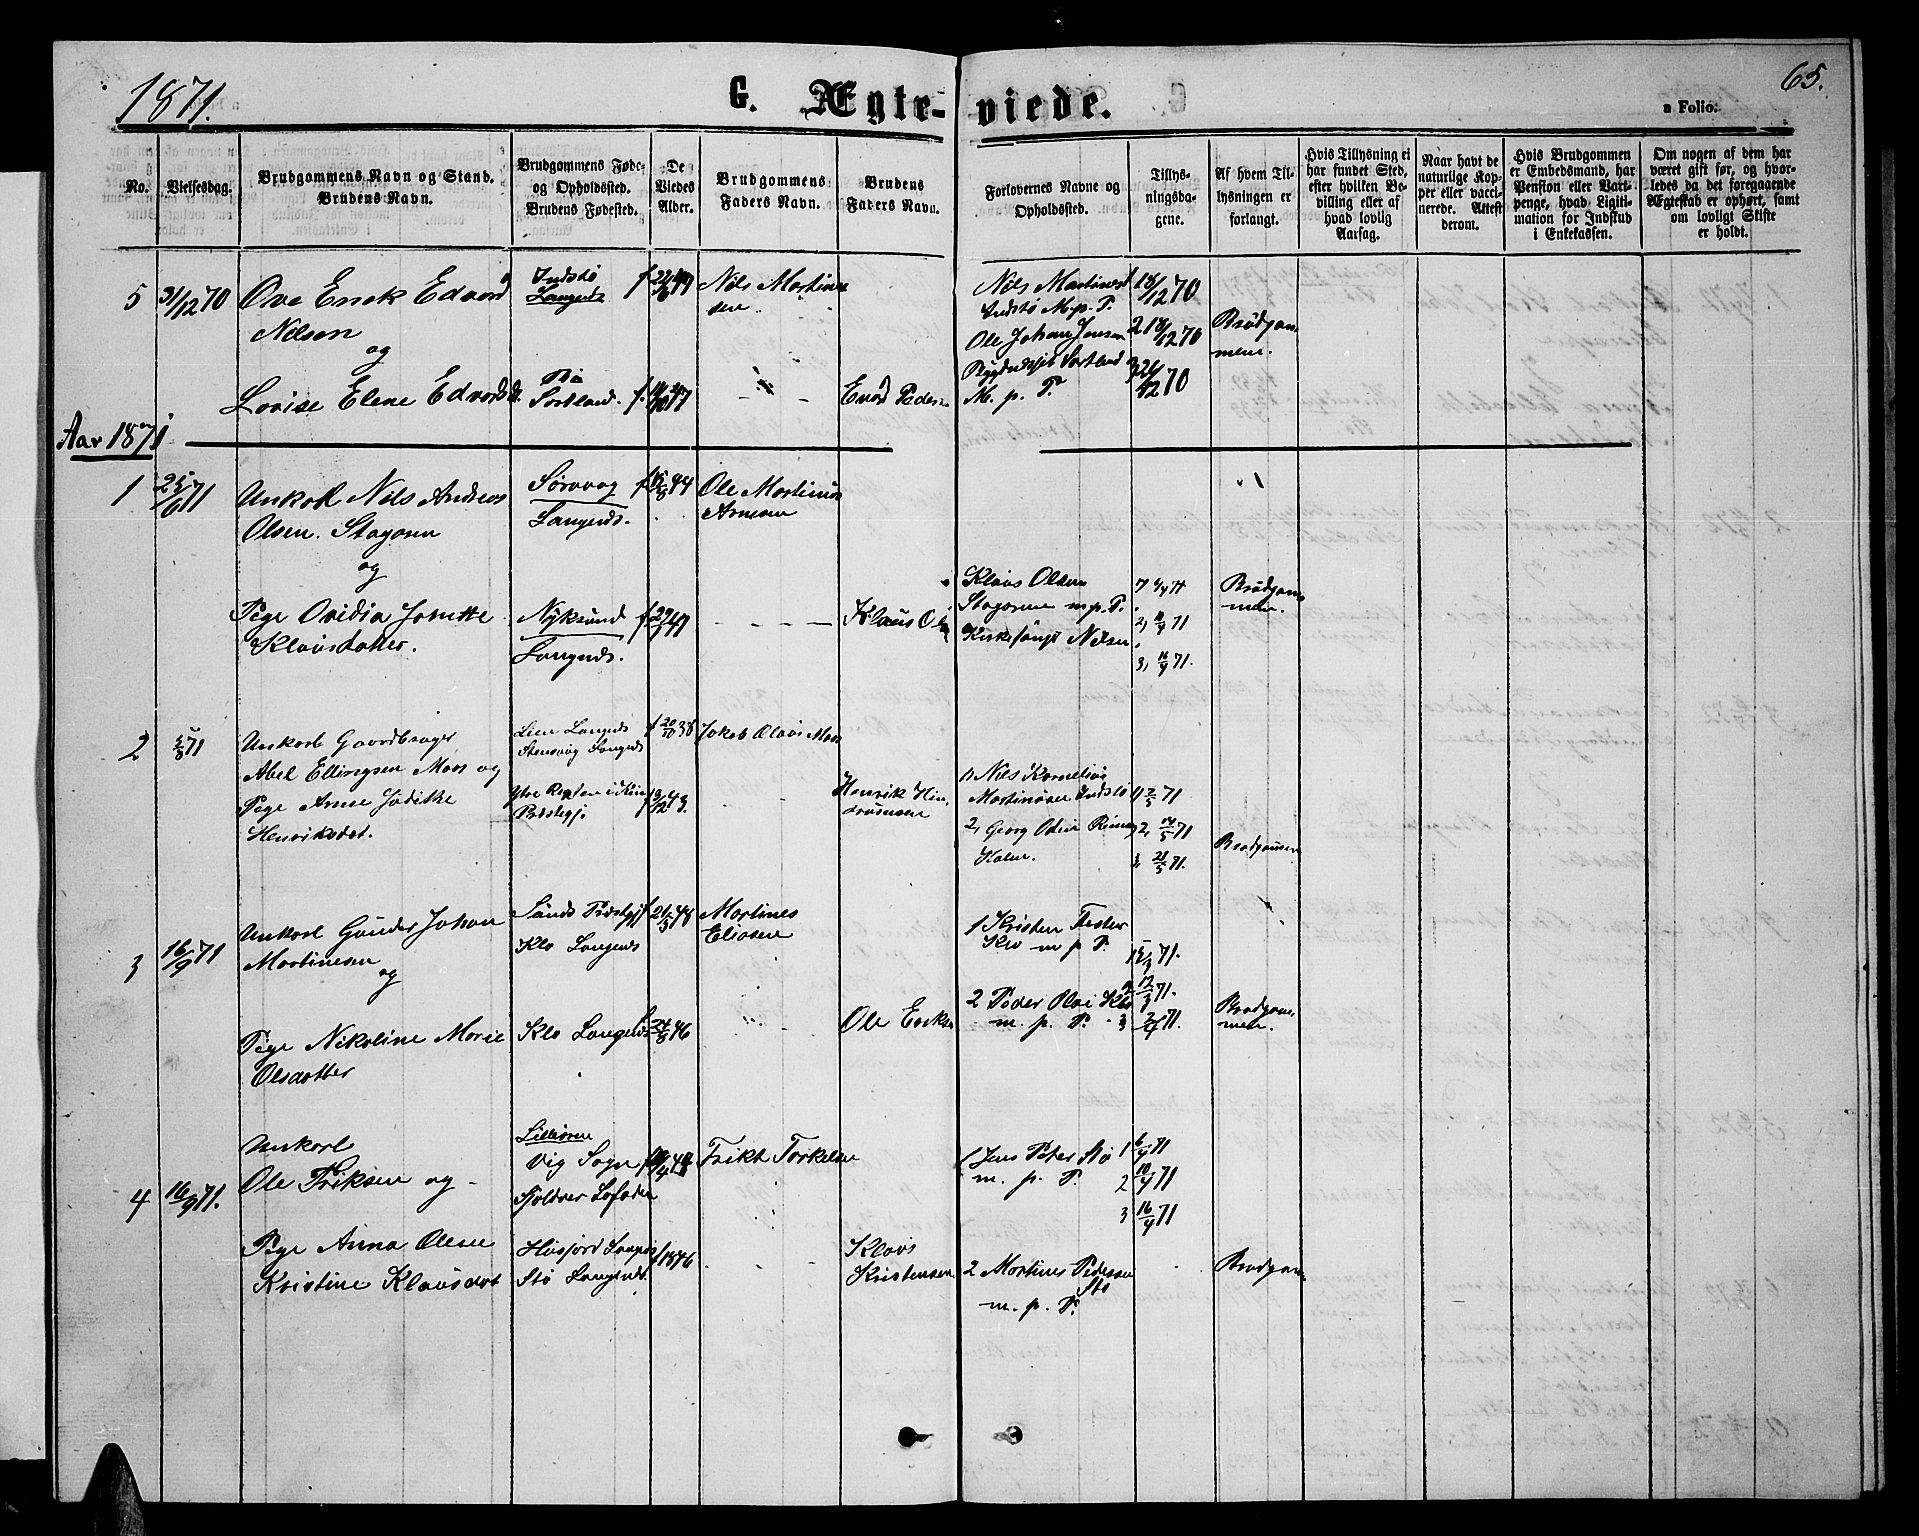 1871.
G. Ægte-
viede.
65.
a Folio.
No.
Vielsesdag.
Brudgommens Navn og Stand.
Brudens Navn.
Brudgommens Føde-
og Opholdssted.
Brudens Fødested.
De
Viedes
Alder.
Brudgommens
Faders Navn.
Brudens
Faders Navn.
Forlovernes Navne og
Opholdssted.
Tillys-
ningsda-
gene.
Af hvem Til-
lysningen er
forlangt.
Hvis Tillysning ei
har fundet Sted,
efter hvilken Be-
villing eller af
hvad lovlig
Aarsag.
Naar havt de
naturlige Kop-
per eller vacci-
nerede. Attest
derom.
Hvis Brudgommen
er Embedsmand, har
Pension eller Vart-
penge, hvad Legiti-
mation for Indskud
i Enkekassen.
Om nogen af dem har
været gift før, og hvor-
ledes da det foregaaende
Ægteskab er ophørt, samt
om lovligt Skifte
er holdt.
5 31/12 70
Ove Erick Edvard
Nilsen
og
Lovise Elene Edvardsd.
Indstø
Langenæs
Bø
Sortland.
Nils Martinus
sen
Evard Peders
Nils Martinus
Indstø M. p. P.
Ole Johan Jensen
Sortland
M. p. P.
18/12 70
2 18/12 70
3 26/12 70
Brødgom
men.
Aar 1871
1
Unkarl Nils Andreas
Olsen. Stagosen
og
Pige Ovidia Jonette
Klausdatter.
Sørovog
Langenæs.
Nyksund
Langenæs.
44
Ole Martinus
Arnesen
Klaus Ols
Klaus Olsen
Stagosen m. p. P.
Kirkesanger Nilsen
2, 71
3, 16/4 71.
Brødgom
men.
2
Unkarl Gaardbruger
Abel Ellingsen Moos og
Pige Anne Judithe
Henriksdat.
Lien Langenæs
Stensvog Langenæs
20/10 38
13/12 43.
Jakob Olaus Moos
Henrik Hin-
driksen
1) Nils Kornelius
Martinusen Indstø
2, Georg Odin
Holm.
2, 14/5 71
3, 21/5 71.
Brødgommen
3 16/9 71
Unkarl Gunder Johan
Martinesen
og
Pige Nikoline Marie
Olsdatter
Sands Præstgj
Klo Langenæs
Klo Langenæs
21/3 48
24/8 46
Martines
Eliasen
Ole Eriks
1 Kristen Fester
Klo m p P.
2 Peder Olai Klo
m. p. P.
15/3 71.
2 12/3 71.
3 2/4 71.
Brødgom
men.
4 16/9 71.
Unkarl
Ole Friksen og
Pige Anna Olene
Kristine Klausdat
Vig Sogn
Fjoldver Lofoden
Husjord
Stø Langenæs
1846
Frikt Torkelsen
Klaus
Kristensen
1 Jens Peter Stø
m. p. P.
2 Martines Pedersen
Stø
m. p. P.
1 6/4 71
2 10/4 71
3 16/4 71
Brødgom